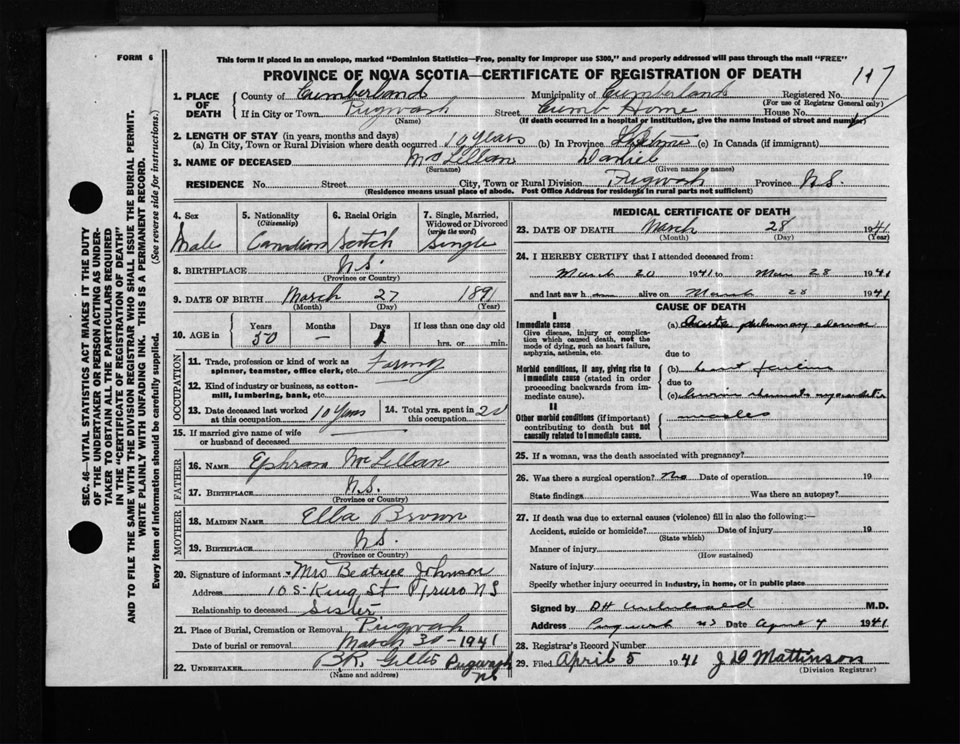 FORM 6
This form if placed in an envelope, marked "Dominion Statistics—Free, penalty for improper use $300," and properly addressed will pass through the mail "FREE"
PROVINCE OF NOVA SCOTIA—CERTIFICATE OF REGISTRATION OF DEATH
147
1. PLACE OF DEATH
County of Cumberland Municipality of Cumberland Registered No.
(For use of Registrar General only)
If in City or Town Pugwash Street Cumb Home House No.
(Name) (If death occurred in a hospital or institution, give the name instead of street and number)
2. LENGTH OF STAY (in years, months and days)
(a) In City, Town or Rural Division where death occurred 14 years (b) In Province Lifetime (c) In Canada (if immigrant)
3. NAME OF DECEASED McLellan Daniel
(Surname) (Given name or names)
RESIDENCE No. Street City, Town or Rural Division Pugwash Province N.S.
(Residence means usual place of abode. Post Office Address for residents in rural parts not sufficient)
SEC. 46—VITAL STATISTICS ACT MAKES IT THE DUTY
OF THE UNDERTAKER OR PERSON ACTING AS UNDER-
TAKER TO OBTAIN ALL THE PARTICULARS REQUIRED
IN THE "CERTIFICATE OF REGISTRATION OF DEATH"
AND TO FILE THE SAME WITH THE DIVISION REGISTRAR WHO SHALL ISSUE THE BURIAL PERMIT.
WRITE PLAINLY WITH UNFADING INK. THIS IS A PERMANENT RECORD.
Every item of information should be carefully supplied. (See reverse side for instructions.)
4. Sex Male
5. Nationality (Citizenship) Canadian
6. Racial Origin Scotch
7. Single, Married, Widowed or Divorced (write the word) Single
8. BIRTHPLACE N.S.
(Province or Country)
9. DATE OF BIRTH March 27 1891
(Month) (Day) (Year)
10. AGE in Years 50 Months — Days 1 If less than one day old hrs. or min.
OCCUPATION
11. Trade, profession or kind of work as spinner, teamster, office clerk, etc. Farming
12. Kind of industry or business, as cotton-mill, lumbering, bank, etc.
13. Date deceased last worked at this occupation 10 Years
14. Total yrs. spent in this occupation 20
15. If married give name of wife or husband of deceased
FATHER
16. NAME Ephram McLellan
17. BIRTHPLACE N.S.
(Province or Country)
MOTHER
18. MAIDEN NAME Ella Brown
19. BIRTHPLACE N.S.
(Province or Country)
20. Signature of informant Mrs Beatrice Johnson
Address 105 King St Truro NS
Relationship to deceased Sister
21. Place of Burial, Cremation or Removal Pugwash
Date of burial or removal March 30 - 1941
22. UNDERTAKER B.R. Gillis Pugwash NS
(Name and address)
MEDICAL CERTIFICATE OF DEATH
23. DATE OF DEATH March 28 1941
(Month) (Day) (Year)
24. I HEREBY CERTIFY that I attended deceased from:
March 20 1941 to Mar 28 1941
and last saw h im alive on March 28 1941
CAUSE OF DEATH
I
Immediate cause
Give disease, injury or complica-
tion which caused death, not the
mode of dying, such as heart failure,
asphyxia, asthenia, etc.
(a) Acute pulmonary edema
due to
Morbid conditions, if any, giving rise to
immediate cause (stated in order
proceeding backwards from im-
mediate cause).
(b) heart failure
due to
(c) Chronic rheumatic myocarditis
II
Other morbid conditions (if important)
contributing to death but not
causally related to immediate cause.
measles
25. If a woman, was the death associated with pregnancy?
26. Was there a surgical operation? No Date of operation 19
State findings Was there an autopsy?
27. If death was due to external causes (violence) fill in also the following:—
Accident, suicide or homicide? Date of injury 19
(State which)
Manner of injury
(How sustained)
Nature of injury
Specify whether injury occurred in industry, in home, or in public place
Signed by DH M.D.
Address Pugwash NS Date April 4 1941
28. Registrar's Record Number
29. Filed April 5 1941 J D Mattinson
(Division Registrar)